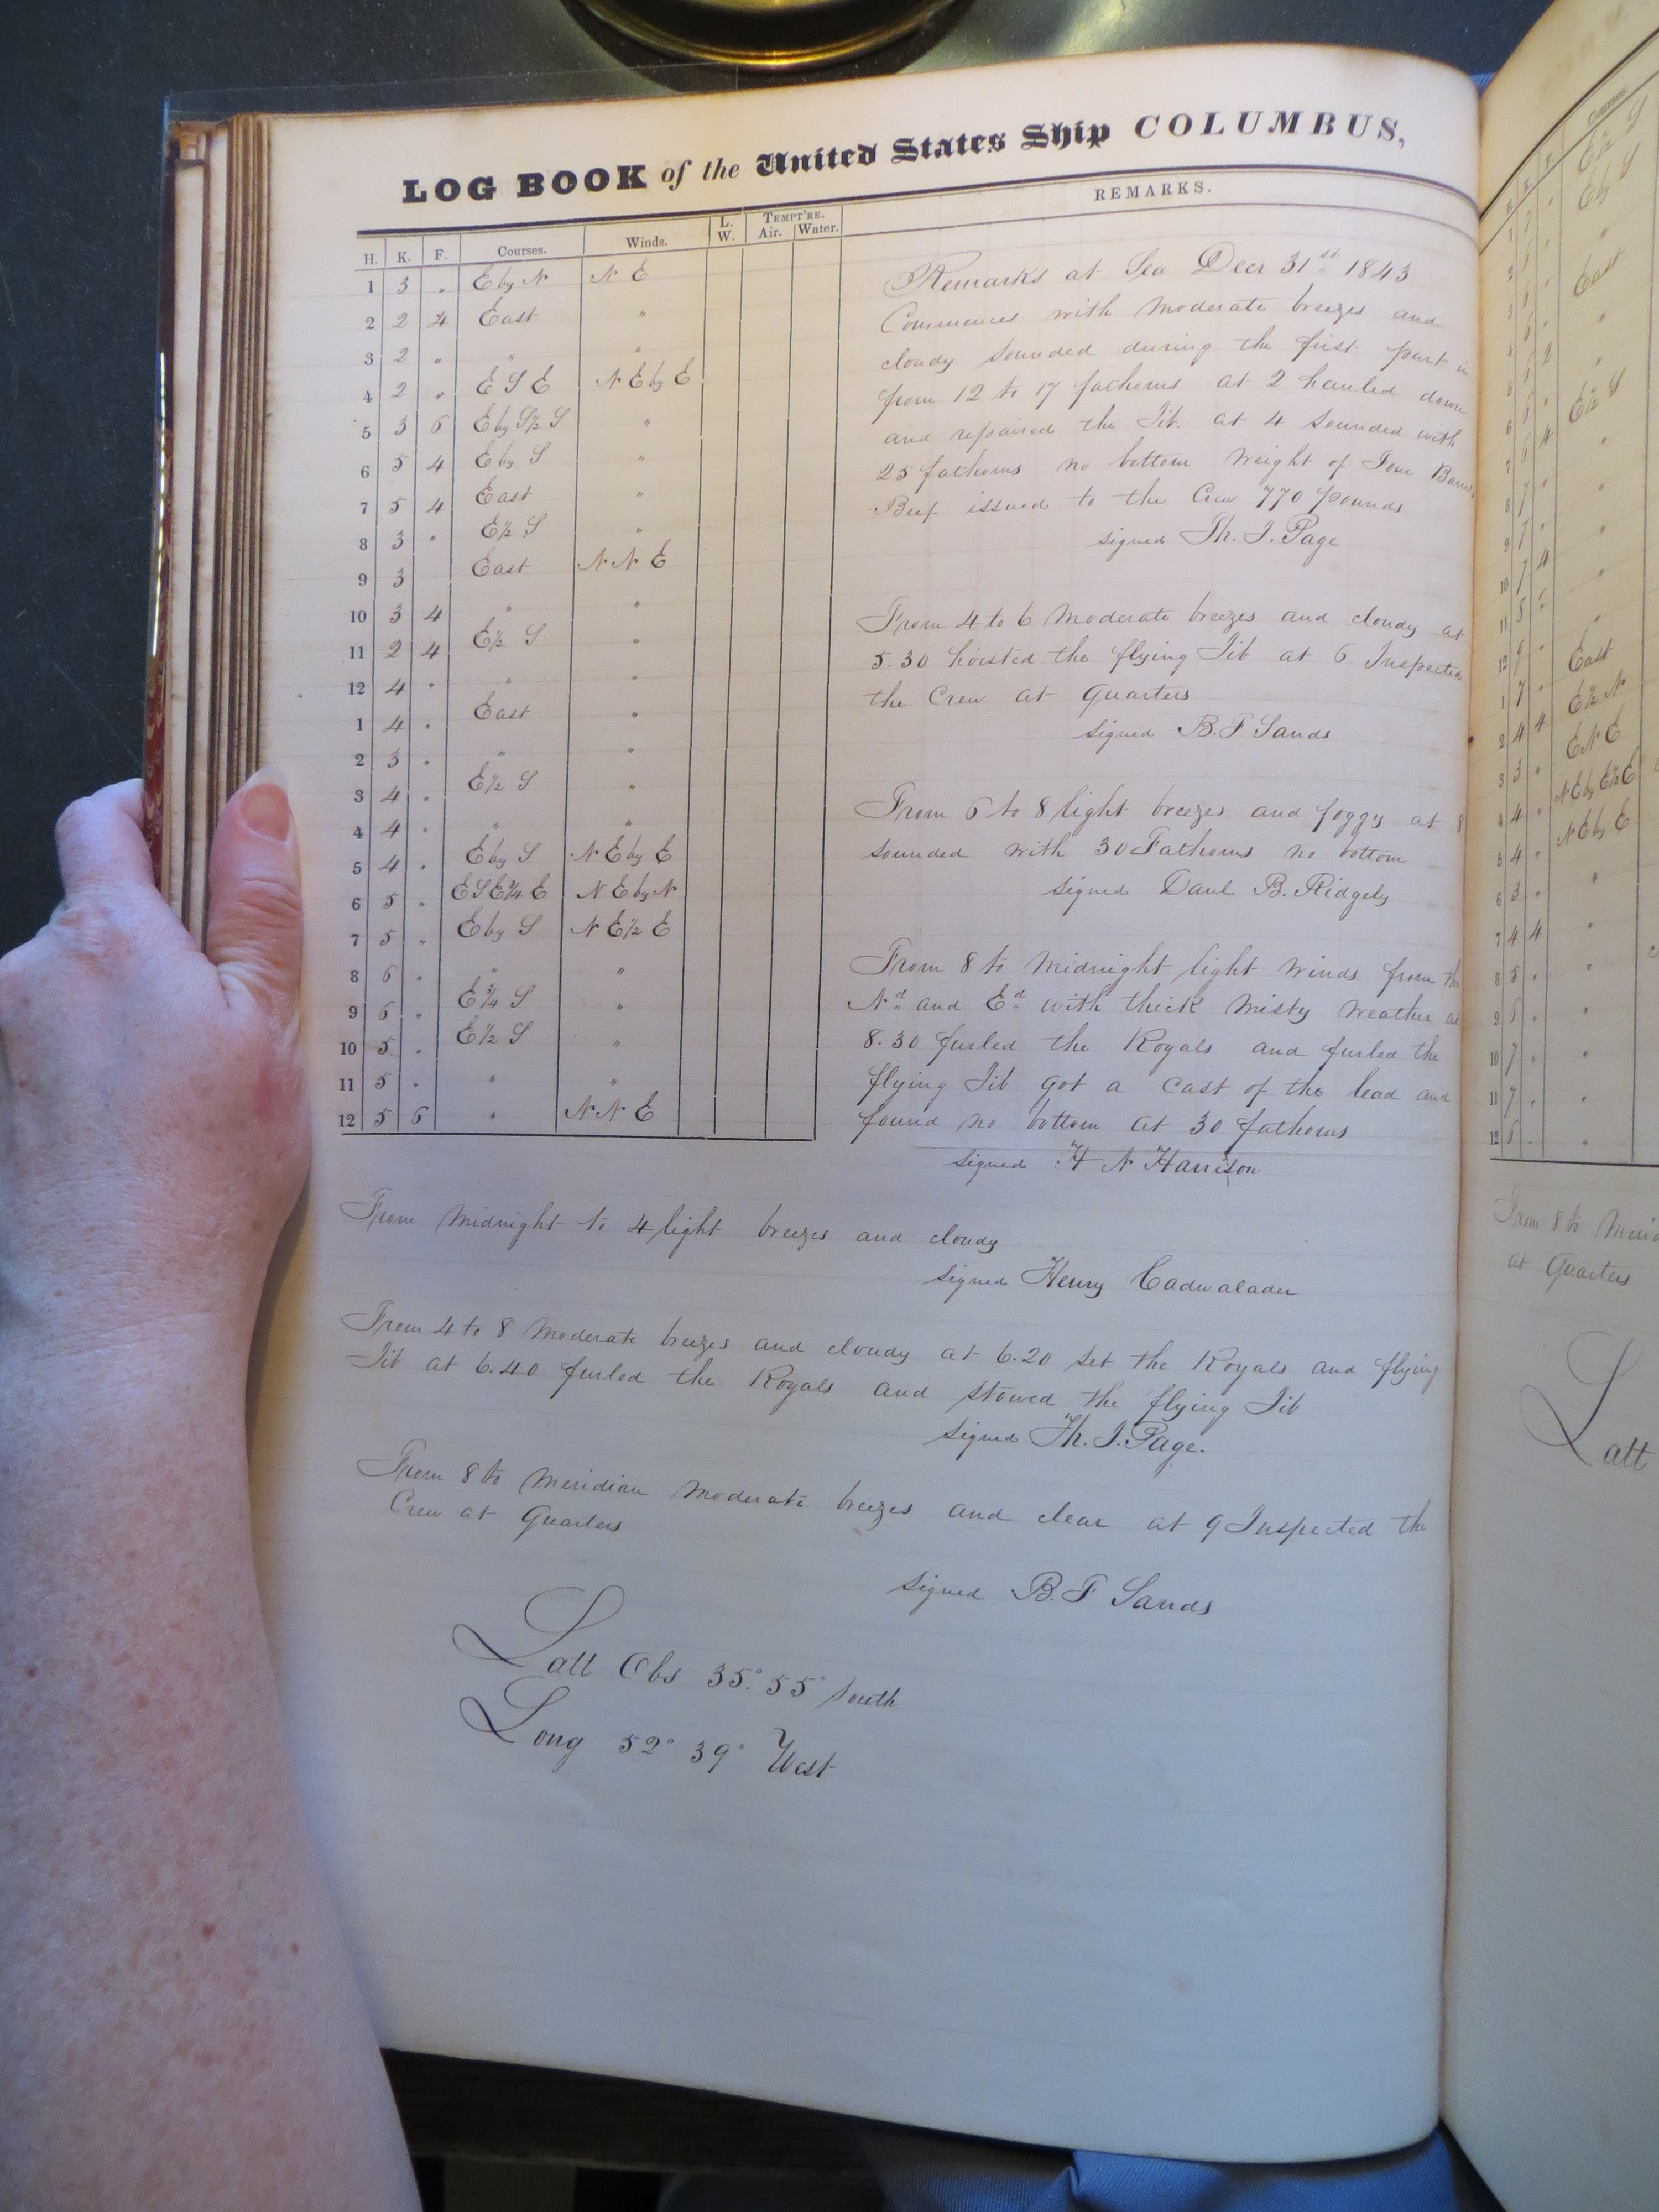 LOG BOOK of the United States Ship COLUMBUS,
H. K. F. Courses. Winds. L. W. TEMPT'RE. Air. Water. REMARKS.
1 3 " E by N N E
2 2 4 East "
3 2 " " "
4 2 " E S E N E by E
5 3 6 E by S ½ S "
6 5 4 E by S "
7 5 4 East "
8 3 " E ½ S "
9 3 East N N E
10 3 4 " "
11 2 4 E ½ S "
12 4 " " "
1 4 " East "
2 3 " " "
3 4 " E ½ S "
4 4 " " "
5 4 " E by S N E by E
6 5 " E S E ¾ E N E by N
7 5 " E by S N E ½ E
8 6 " " "
9 6 " E ¾ S "
10 5 " E ½ S "
11 5 " " "
12 5 6 " N N E
Remarks at Sea Decr 31st 1843
Commences with moderate breezes and
cloudy sounded during the first part in
from 12 to 17 fathoms at 2 hauled down
and repaired the Jib. at 4 sounded with
25 fathoms no bottom Weight of Four
Beef issued to the Crew 770 pounds
signed Th. J. Page
From 4 to 6 moderate breezes and cloudy at
5.30 hoisted the flying Jib at 6 Inspected
the Crew at Quarters
Signed B. F Sands
From 6 to 8 light breezes and foggy at 8
sounded with 30 Fathoms no bottom
Signed Danl B. Ridgely
From 8 to Midnight light winds from the
Nd and Ed with thick misty weather at
8.30 furled the Royals and furled the
flying Jib got a cast of the lead and
found no bottom at 30 fathoms
Signed N Harrison
From Midnight to 4 light breezes and cloudy
Signed Henry Cadwalader
From 4 to 8 Moderate breezes and cloudy at 6.20 set the Royals and flying
Jib at 6.40 furled the Royals and stowed the flying Jib
Signed Th. J. Page.
From 8 to Meridian Moderate breezes and clear at 9 Inspected the
Crew at Quarters
Signed B. F Sands
Latt Obs 35° 55' South
Long 52° 39' West
From 8 to
at Quarters
Latt